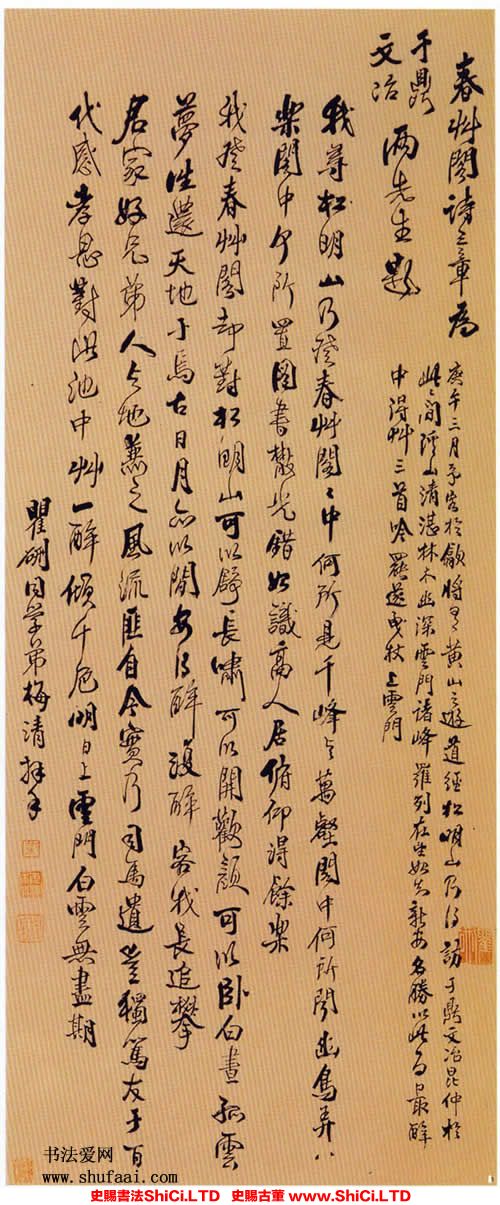 春艸閣詩三章為
于鼎
文冶 兩先生題
庚午三月予客於歙將有黃山之遊道經松明山乃得訪于鼎文冶昆仲於
此間溪山清湛林木幽深雲門諸峰羅列在坐如矣新安名勝以此為最醉
中得艸三首吟罷遂曳杖上雲門
我尋松明山乃登春艸閣閣中何所見千峰與萬壑閣中何所聞幽鳥弄
樂閣中何所置圖書散光錯如識高人居俯仰得餘樂
我登春艸閣却對松明山可以舒長嘯可以開歡顏可以臥白晝孤雲
夢往還天地于焉古日月亦以閒安得醉復醉容我長追攀
君家好兄弟人與地兼之風流匪自今實乃司馬遺豈獨篤友于百
代感孝思對此池中艸一醉傾千卮明日上雲門白雲無盡期
瞿硎同學弟梅清拜手
书法爱网
www.shufaai.com
史賜書法ShiCi.LTD 史賜古董 www.ShiCi.LTD